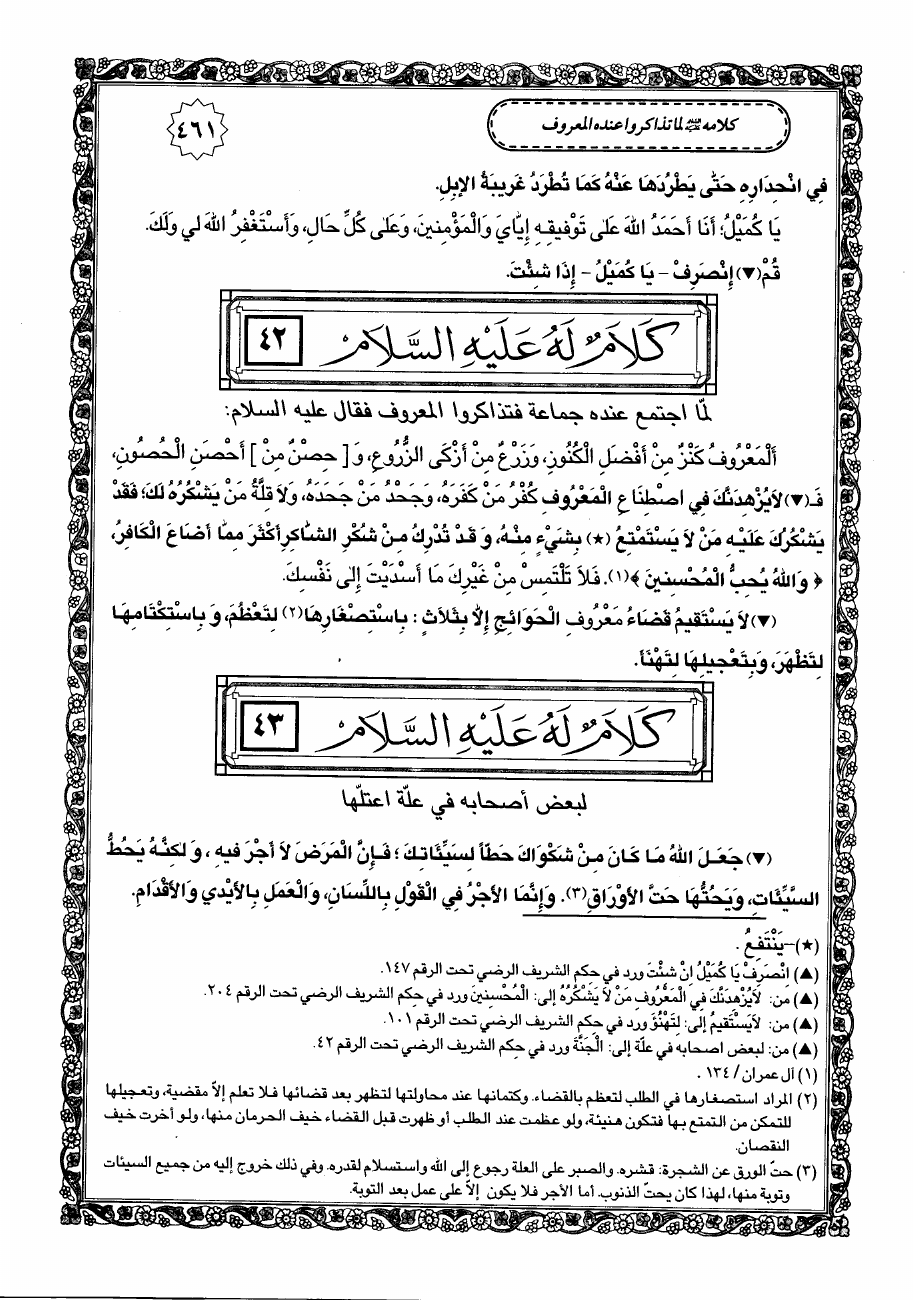 كلامه ﷺ لما تذاكروا عنده المعروف
٤٦١
فِي انْحِدَارِهِ حَتَّى يَطْرُدَهَا عَنْهُ كَمَا تُطْرَدُ غَرِيبَةُ الإِبِلِ.
يَا كُمَيْلُ؛ أَنَا أَحْمَدُ اللهَ عَلَى تَوْفِيقِهِ إِيَّايَ وَالْمُؤْمِنِينَ، وَعَلَى كُلِّ حَالٍ، وَأَسْتَغْفِرُ اللهَ لي وَلَكَ.
قُمْ(▼) إِنْصَرِفْ - يَا كُمَيْلُ - إِذَا شِئْتَ.
كَلَامٌ لَهُ عَلَيْهِ السَّلَامُ
٤٢
لمّا اجتمع عنده جماعة فتذاكروا المعروف فقال عليه السلام:
أَلْمَعْرُوفُ كَنْزٌ مِنْ أَفْضَلِ الْكُنُوزِ، وَزَرْعٌ مِنْ أَزْكَى الزُّرُوعِ، وَ [ حِصْنٌ مِنْ ] أَحْصَنِ الْحُصُونِ،
فَـ(▼) لاَ يُزْهِدَنَّكَ فِي اصْطِنَاعِ الْمَعْرُوفِ كُفْرُ مَنْ كَفَرَهُ، وَجَحْدُ مَنْ جَحَدَهُ، وَلاَ قِلَّةُ مَنْ يَشْكُرُهُ لَكَ؛ فَقَدْ
يَشْكُرُكَ عَلَيْهِ مَنْ لاَ يَسْتَمْتِعُ (★) بِشَيْءٍ مِنْهُ، وَ قَدْ تُدْرِكُ مِنْ شُكْرِ الشَّاكِرِ أَكْثَرَ مِمَّا أَضَاعَ الْكَافِرُ،
﴿ وَاللهُ يُحِبُّ الْمُحْسِنِينَ ﴾(١). فَلاَ تَلْتَمِسْ مِنْ غَيْرِكَ مَا أَسْدَيْتَ إِلَى نَفْسِكَ.
(▼) لاَ يَسْتَقِيمُ قَضَاءُ مَعْرُوفِ الْحَوَائِجِ إِلاَّ بِثَلاَثٍ : بِاسْتِصْغَارِهَا(٢) لِتَعْظُمَ، وَ بِاسْتِكْتَامِهَا
لِتَظْهَرَ، وَبِتَعْجِيلِهَا لِتَهْنَأَ.
كَلَامٌ لَهُ عَلَيْهِ السَّلَامُ
٤٣
لبعض أصحابه في علّة اعتلّها
(▼) جَعَلَ اللهُ مَا كَانَ مِنْ شَكْوَاكَ حَطّاً لِسَيِّئَاتِكَ ؛ فَإِنَّ الْمَرَضَ لاَ أَجْرَ فِيهِ ، وَ لكِنَّهُ يَحُطُّ
السَّيِّئَاتِ، وَيَحُتُّهَا حَتَّ الأَوْرَاقِ(٣). وَإِنَّمَا الأَجْرُ فِي الْقَوْلِ بِاللِّسَانِ، وَالْعَمَلِ بِالأَيْدِي وَالأَقْدَامِ.
(★)-يَنْتَفِعُ .
(▲) انْصَرِفْ يَا كُمَيْلُ إِنْ شِئْتَ ورد في حكم الشريف الرضي تحت الرقم ١٤٧.
(▲) من: لاَيُزْهِدَنَّكَ فِي الْمَعْرُوفِ مَنْ لاَ يَشْكُرُهُ إلى: الْمُحْسِنِينَ ورد في حكم الشريف الرضي تحت الرقم ٢٠٤.
(▲) من: لاَيَسْتَقِيمُ إلى: لِتَهْنُؤَ ورد في حكم الشريف الرضي تحت الرقم ١٠١.
(▲) من: لبعض اصحابه في علّة إلى: الْجَنَّةَ ورد في حكم الشريف الرضي تحت الرقم ٤٢.
(١) آل عمران / ١٣٤ .
(٢) المراد استصغارها في الطلب لتعظم بالقضاء. وكتمانها عند محاولتها لتظهر بعد قضائها فلا تعلم إلاّ مقضية، وتعجيلها
للتمكن من التمتع بها فتكون هنيئة، ولو عظمت عند الطلب أو ظهرت قبل القضاء خيف الحرمان منها، ولو أخرت خيف
النقصان.
(٣) حتّ الورق عن الشجرة: قشره. والصبر على العلة رجوع إلى الله واستسلام لقدره. وفي ذلك خروج إليه من جميع السيئات
وتوبة منها، لهذا كان يحتّ الذنوب. أما الأجر فلا يكون إلاّ على عمل بعد التوبة.